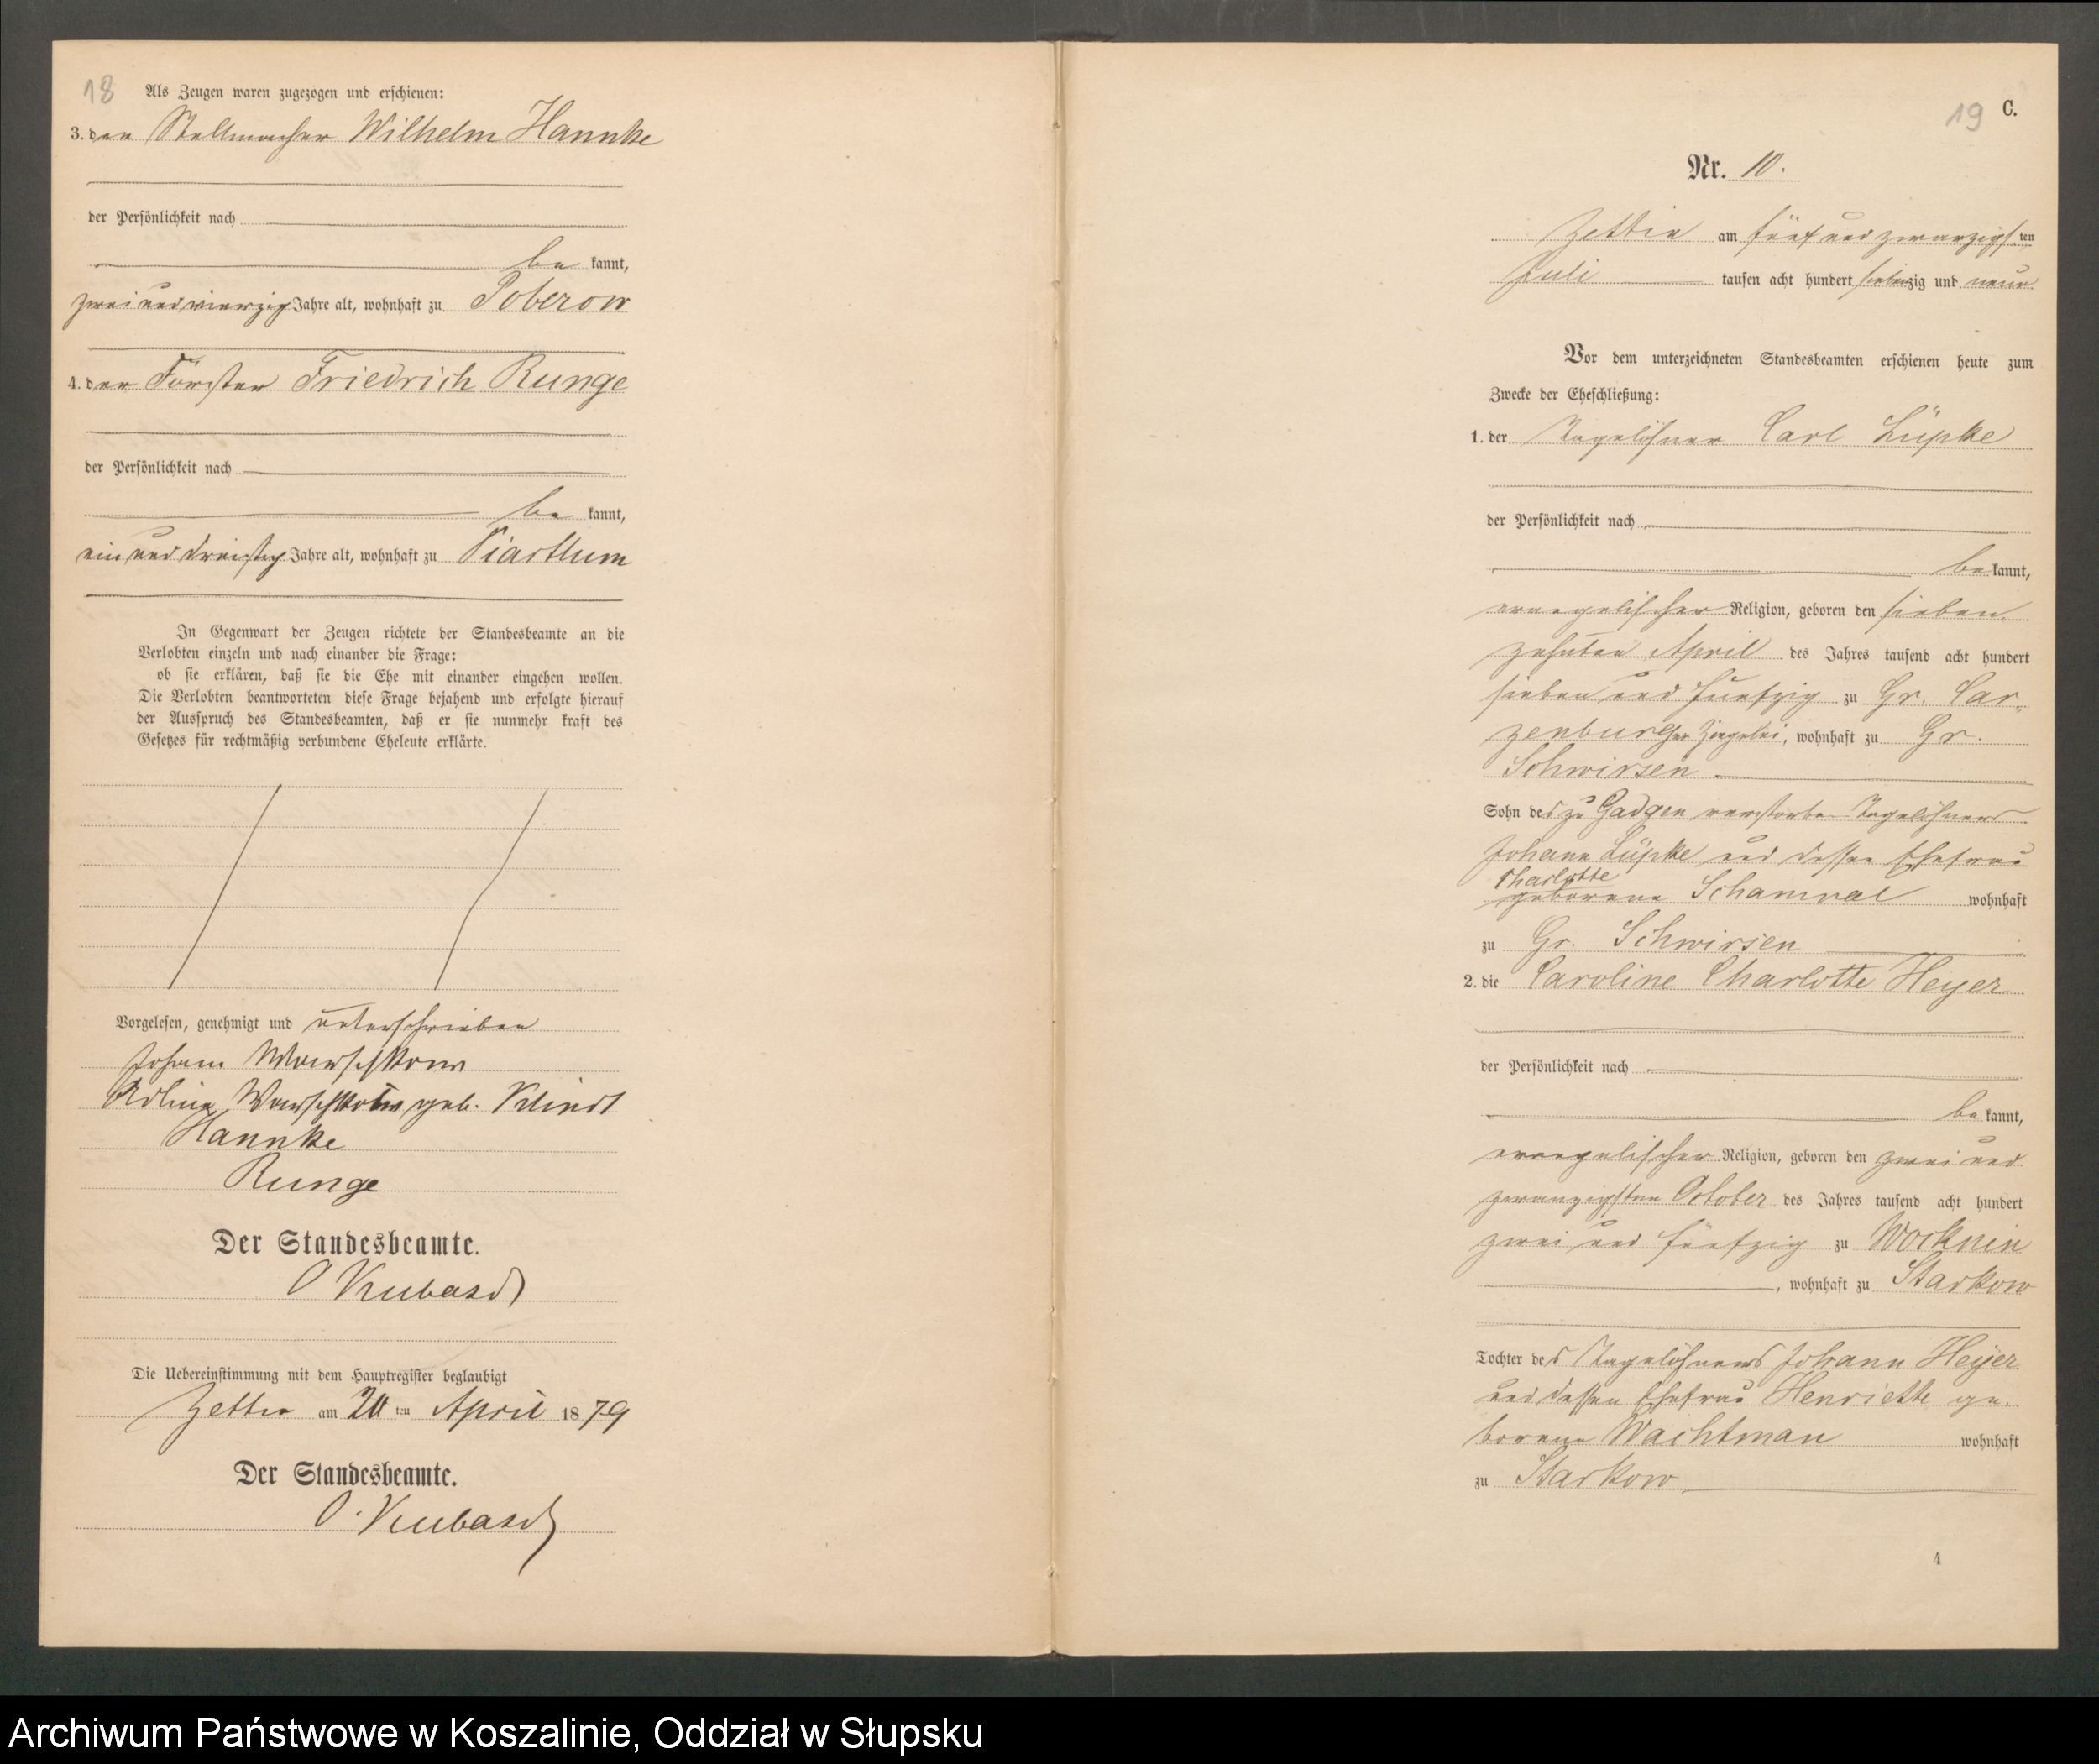 18 Als Zeugen waren zugezogen und erschienen:
3. der Stellmacher Wilhelm Hannke
der Persönlichkeit nach
be kannt,
zwei und vierzig Jahre alt, wohnhaft zu Poberow
4. der Förster Friedrich Runge
der Persönlichkeit nach
be kannt,
ein und dreißig Jahre alt, wohnhaft zu
In Gegenwart der Zeugen richtete der Standesbeamte an die
Verlobten einzeln und nach einander die Frage:
ob sie erklären, daß sie die Ehe mit einander eingehen wollen.
Die Verlobten beantworteten diese Frage bejahend und erfolgte hierauf
der Ausspruch des Standesbeamten, daß er sie nunmehr kraft des
Gesetzes für rechtmäßig verbundene Eheleute erklärte.
Vorgelesen, genehmigt und unterschrieben
Johann
geb.
Hannke
Runge
Der Standesbeamte.
Die Uebereinstimmung mit dem Hauptregister beglaubigt
Zettin am 20 ten April 1879
Der Standesbeamte.
19 C.
Nr. 10.
Zettin am fünf und zwanzigsten
Juli tausen acht hundert siebenzig und neun
Vor dem unterzeichneten Standesbeamten erschienen heute zum
Zwecke der Eheschließung:
1. der Tagelöhner Carl Lüpke
der Persönlichkeit nach
be kannt,
evangelischer Religion, geboren den sieben
zehnten April des Jahres tausend acht hundert
sieben und funfzig zu Gr. Car
zenburger Ziegelei, wohnhaft zu Gr.
Schwirsen
Sohn des zu Gadgen verstorbn Tagelöhners
Johann Lüpke und dessen Ehefrau
Charlotte
geborene wohnhaft
zu Gr. Schwirsen
2. die Caroline Charlotte Heyer
der Persönlichkeit nach
be kannt,
evangelischer Religion, geboren den zwei und
zwanzigsten October des Jahres tausend acht hundert
zwei und fünfzig zu Wocknin
, wohnhaft zu Starkow
Tochter des Tagelöhners Johann Heyer
und dessen Ehefrau Henriette ge-
borene Wachtman wohnhaft
zu Starkow
4
Archiwum Państwowe w Koszalinie, Oddział w Słupsku